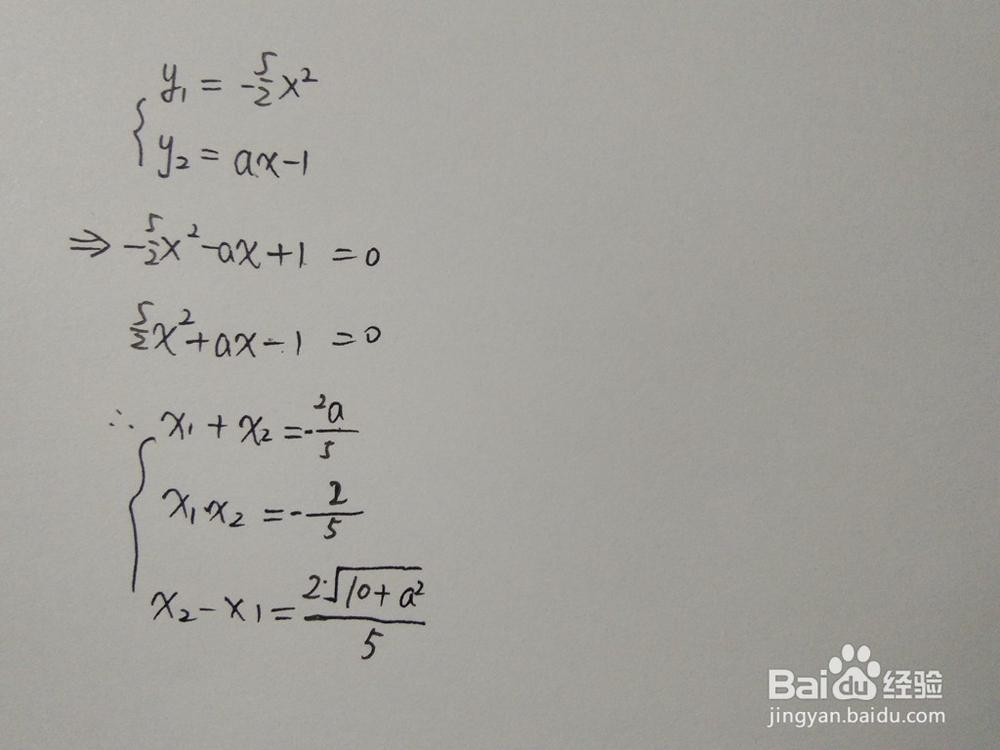 y₁ = -5/2 x²
y₂ = ax-1
⇒ -5/2 x² -ax+1 = 0
5/2 x² +ax-1 = 0
∴ x₁ + x₂ = -2a/5
x₁·x₂ = -2/5
x₂-x₁ = 2·√(10+a²)/5
Baidu 经验
jingyan.baidu.com